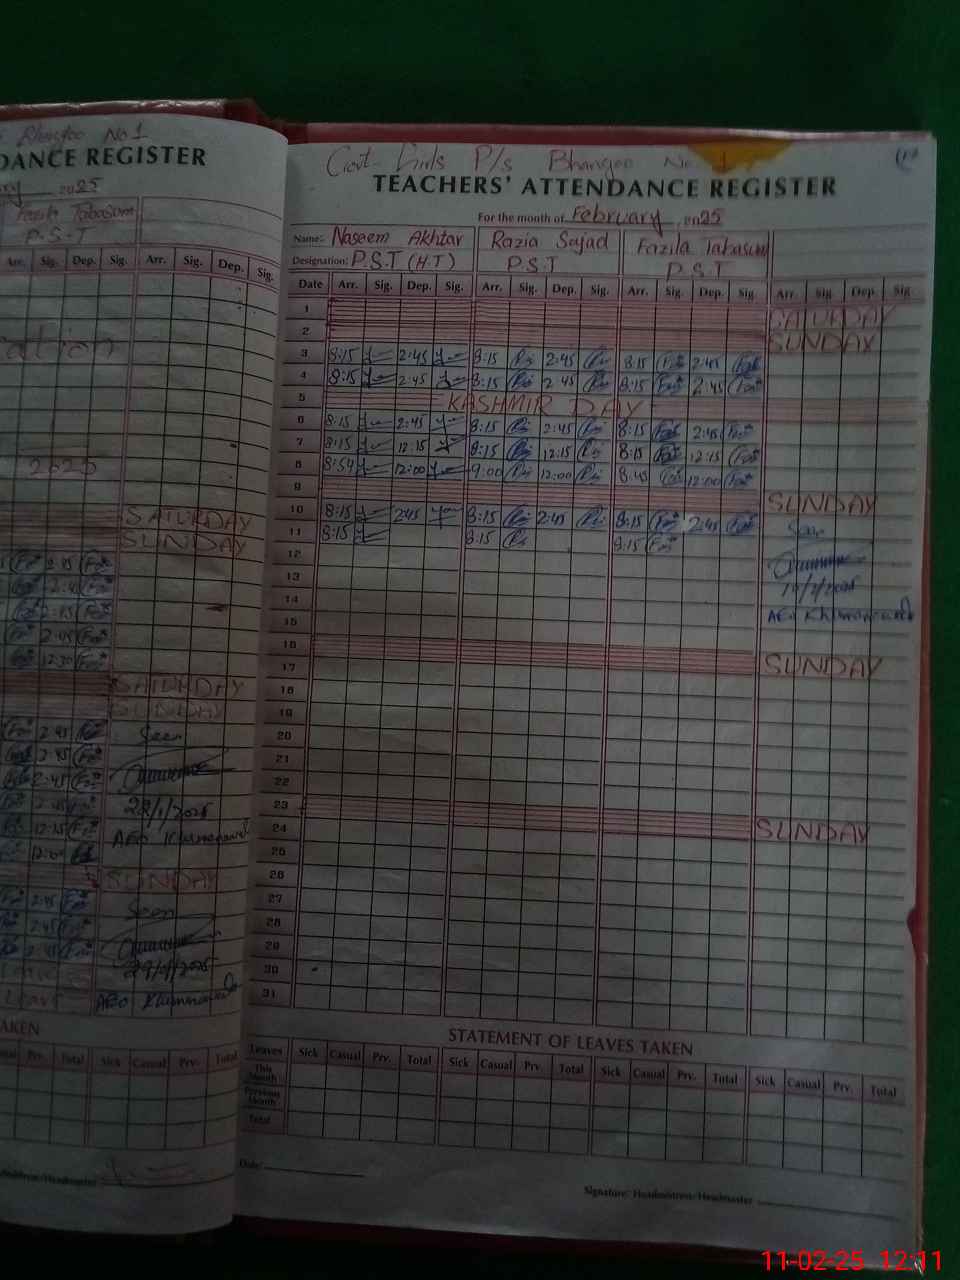 Bhangoo No 1
DANCE REGISTER
2025
Fazila Tabasum
P.S.T
Arr. Sig. Dep. Sig. Arr. Sig. Dep. Sig.
2025
SATURDAY
SUNDAY
2:45
2:45
2:45
2:45
12:30
SATURDAY
SUNDAY
2:45 Seen
2:45
2:45
2:45 28/1/2025
12:15 AEO Khumanwala
12:00
SUNDAY
2:45 Seen
2:45
2:45 29/01/2025
Leave AEO Khumanwala
TAKEN
Total Sick Casual Prv. Total
Govt. Girls P/s Bhangoo No 1
TEACHERS' ATTENDANCE REGISTER
For the month of February 2025
Name: Naseem Akhtar Razia Sajad Fazila Tabasum
Designation: P.S.T (H.T) P.S.T P.S.T
Date Arr. Sig. Dep. Sig. Arr. Sig. Dep. Sig. Arr. Sig. Dep. Sig. Arr. Sig. Dep. Sig.
1 SATURDAY
2 SUNDAY
3 8:15 2:45 8:15 2:45 8:15 2:45
4 8:15 2:45 8:15 2:45 8:15 2:45
5 KASHMIR DAY
6 8:15 2:45 8:15 2:45 8:15 2:45
7 8:15 12:15 8:15 12:15 8:15 12:15
8 8:54 12:00 9:00 12:00 8:45 12:00
9 SUNDAY
10 8:15 2:45 8:15 2:45 8:15 2:45 Seen
11 8:15 8:15 8:15
12
13 10/2/2025
14 AEO Khumanwala
15
16 SUNDAY
17
18
19
20
21
22
23 SUNDAY
24
25
26
27
28
29
30
31
STATEMENT OF LEAVES TAKEN
Leaves Sick Casual Prv. Total Sick Casual Prv. Total Sick Casual Prv. Total Sick Casual Prv. Total
This Month
Previous Month
Total
Date:
Signature: Headmistress/Headmaster
11-02-25 12:11